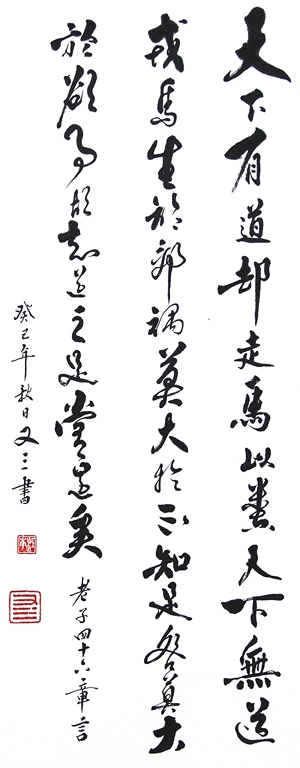 天下有道却走馬以糞天下無道
戎馬生於郊禍莫大於不知足咎莫大
於欲得故知足之足常足矣
老子四十六章言
癸巳年秋日又三書